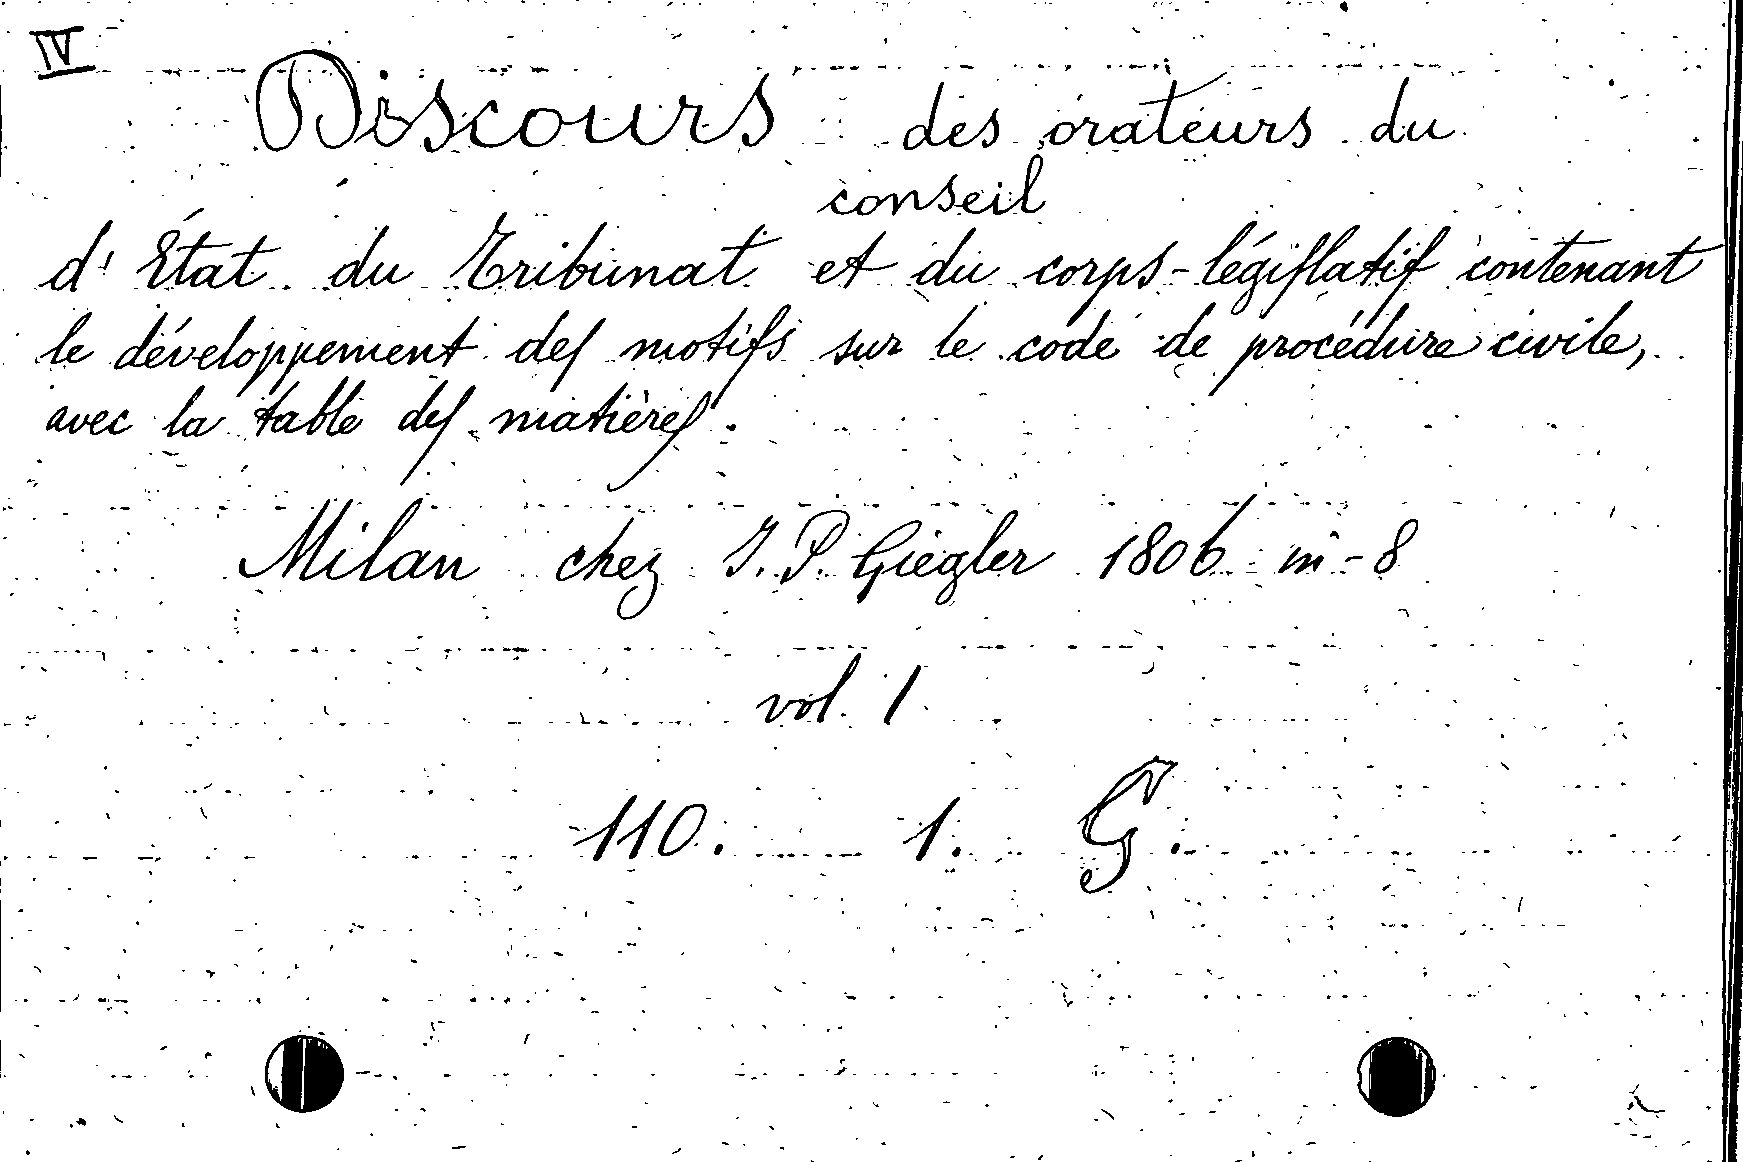 IV
Discours des orateurs du
conseil
d'État du Tribunat et du corps-législatif contenant
le développement des motifs sur le code de procédure civile,
avec la table des matières.
Milan chez J. P. Giegler 1806 in-8
vol. 1
110. 1. G.